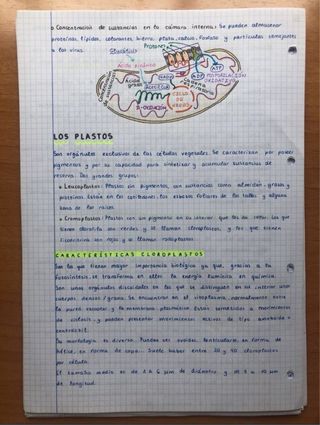 o Concentración de sustancias en la cámara interna: Se pueden almacenar
proteínas, lípidos, colorantes, hierro, plata, calcio, fosfato y partículas semejantes
a los virus.
Glucólisis
Protones
Ácido pirúvico
Ácidos grasos
NADH
Acetil CoA
ADP
ATP
FOSFORILACIÓN
OXIDATIVA
β-OXIDACIÓN
CICLO
DE
KREBS
LOS PLASTOS
Son orgánulos exclusivos de las células vegetales. Se caracterizan por poseer
pigmentos y por su capacidad para sintetizar y acumular sustancias de
reserva. Dos grandes grupos:
o Leucoplastos: Plastos sin pigmentos, con sustancias como almidón, grasas y
proteínas. Están en los cotiledones, los esbozos foliares de los tallos y alguna
zona de las raíces.
o Cromoplastos: Plastos con un pigmento en su interior, que les da color. Los que
tienen clorofila son verdes y se llaman cloroplastos, y los que tienen
son rojos y se llaman rodoplastos.
CARACTERÍSTICAS CLOROPLASTOS
Son los que tienen mayor importancia biológica ya que, gracias a la
fotosíntesis, se transforma en ellos la energía lumínica en química.
Son unos orgánulos discoidales en los que se distinguen en su interior unos
cuerpos densos / grana. Se encuentran en el citoplasma, normalmente entre
la pared celular y la membrana plasmática. Están sometidos a movimientos
de ciclosis, y pueden presentar movimientos activos de tipo ameboide o
contráctil.
Su morfología es diversa. Pueden ser ovoides, lenticulares, en forma de
hélice, en forma de copa... Suele haber entre 20 y 40 cloroplastos
por célula.
El tamaño medio es de 2 a 6 μm de diámetro y de 5 a 10 μm
de longitud.